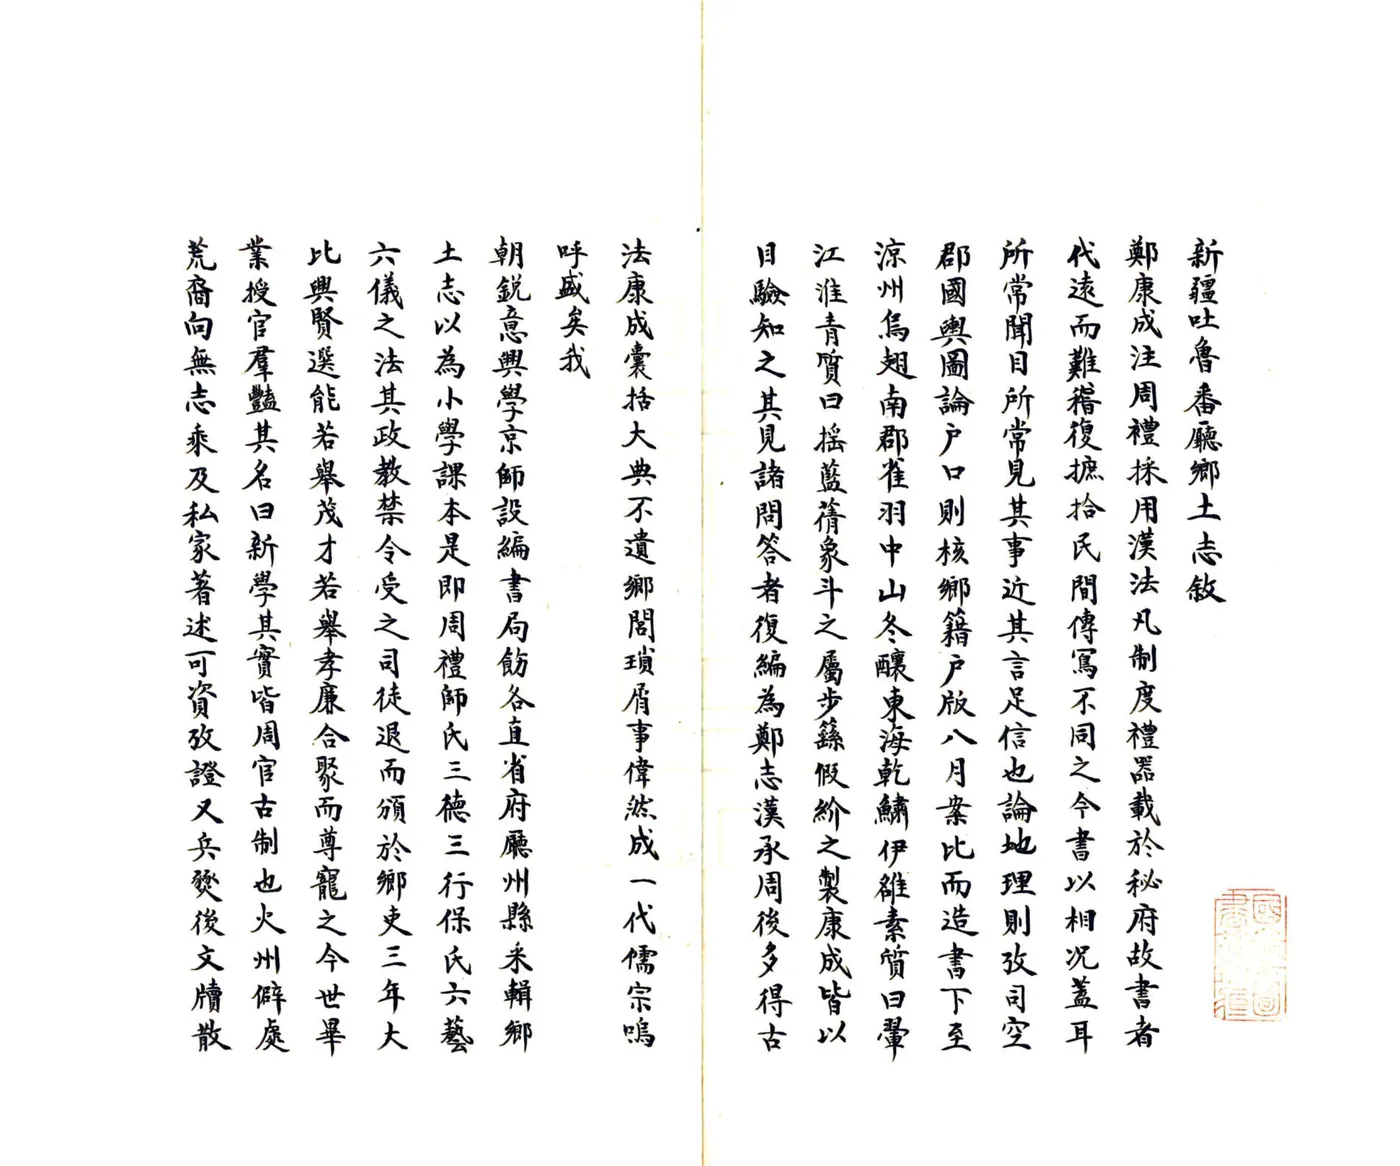 新疆吐魯番廳鄉土志敘
鄭康成注周禮採用漢法凡制度禮器載於秘府故書者
代遠而難稽復摭拾民間傳寫不同之今書以相况蓋耳
所常聞目所常見其事近其言足信也論地理則攷司空
郡國輿圖論户口則核鄉籍户版八月案比而造書下至
涼州烏翅南郡雀羽中山冬釀東海乾鱐伊雒素質曰翬
江淮青質曰搖藍蒨象斗之屬步繇假紒之製康成皆以
目驗知之其見諸問答者復編為鄭志漢承周後多得古
法康成囊括大典不遺鄉閭瑣屑事偉然成一代儒宗嗚
呼盛矣我
朝銳意興學京師設編書局飭各直省府廳州縣采輯鄉
土志以為小學課本是即周禮師氏三德三行保氏六藝
六儀之法其政教禁令受之司徒退而頒於鄉吏三年大
比興賢選能若舉茂才若舉孝廉合聚而尊寵之今世畢
業授官羣豔其名曰新學其實皆周官古制也火州僻處
荒裔向無志乘及私家著述可資攷證又兵燹後文牘散